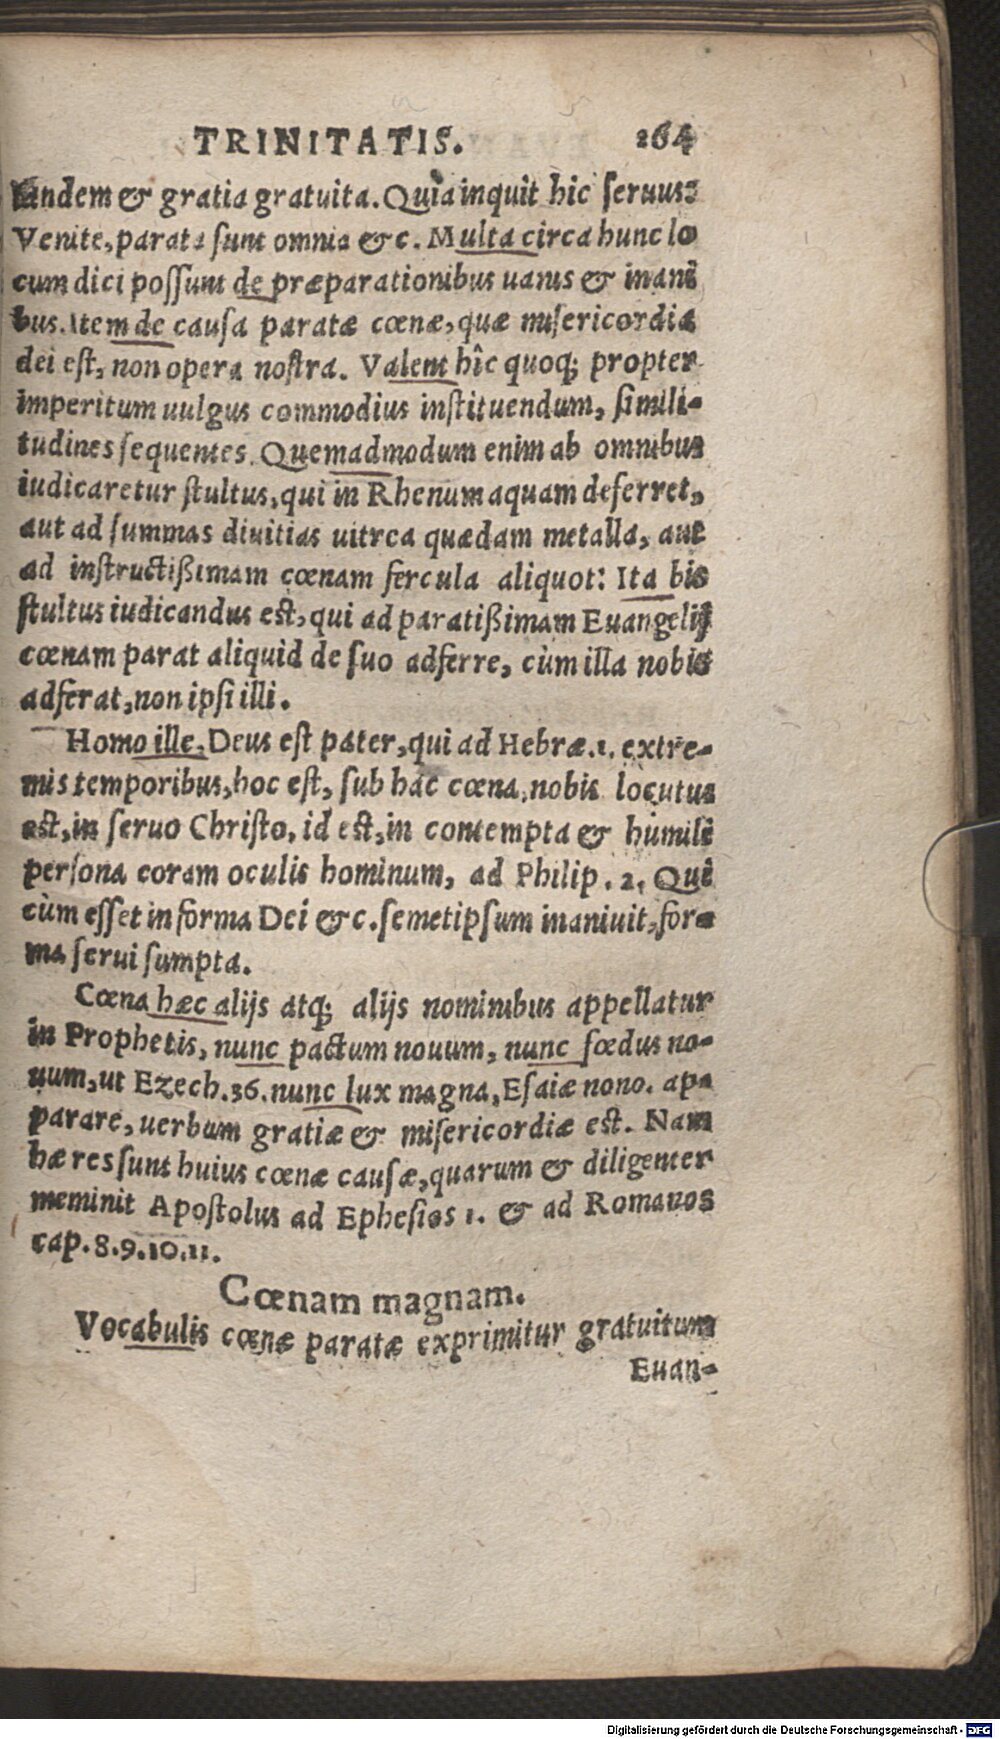 TRINITATIS. 264
tandem & gratia gratuita. Quia inquit hic seruus:
Venite, parata sunt omnia &c. Multa circa hunc lo
cum dici possunt de præparationibus uanis & inani
bus. Item de causa paratæ cœnæ, quæ misericordia
dei est, non opera nostra. Valent hîc quoq; propter
imperitum uulgus commodius instituendum, simili-
tudines sequentes. Quemadmodum enim ab omnibus
iudicaretur stultus, qui in Rhenum aquam deferret,
aut ad summas diuitias uitrea quædam metalla, aut
ad instructißimam cœnam fercula aliquot: Ita bis
stultus iudicandus est, qui ad paratißimam Euangelij
cœnam parat aliquid de suo adferre, cùm illa nobis
adferat, non ipsi illi.
Homo ille, Deus est pater, qui ad Hebræ. 1. extre-
mis temporibus, hoc est, sub hac cœna, nobis locutus
est, in seruo Christo, id est, in contempta & humili
persona coram oculis hominum, ad Philip. 2. Qui
cùm esset in forma Dei &c. semetipsum inaniuit, for-
ma serui sumpta.
Cœna hæc alijs atq; alijs nominibus appellatur
in Prophetis, nunc pactum nouum, nunc fœdus no-
uum, ut Ezech. 36. nunc lux magna, Esaiæ nono. apa
parare, uerbum gratiæ & misericordiæ est. Nam
hæ res sunt huius cœnæ causæ, quarum & diligenter
meminit Apostolus ad Ephesios 1. & ad Romanos
cap. 8. 9. 10. 11.
Cœnam magnam.
Vocabulis cœnæ paratæ exprimitur gratuitum
Euan-
Digitalisierung gefördert durch die Deutsche Forschungsgemeinschaft - DFG